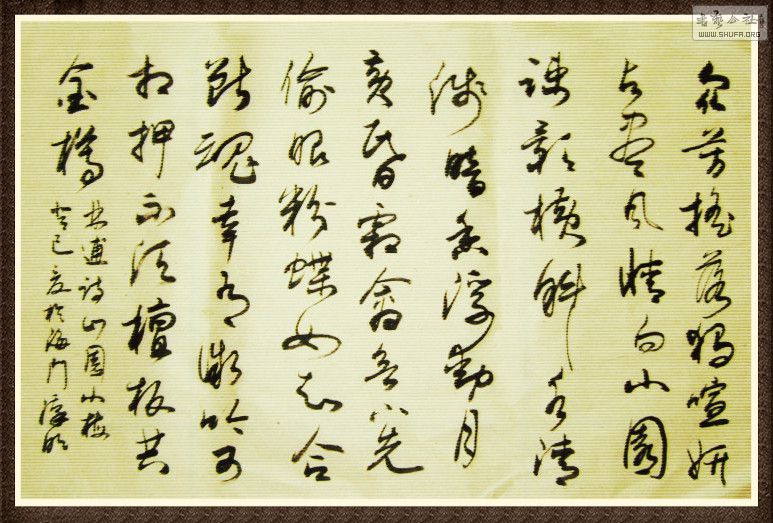 众芳摇落独喧妍
占尽风情向小園
疎影横斜水清
浅暗香浮動月
黄昏霜禽欲下先
偷眼粉蝶如知合
断魂幸有微吟可
相押不须檀板共
金樽
林逋诗山園小梅
癸巳夏於海门
書藝公社
WWW.SHUFA.ORG